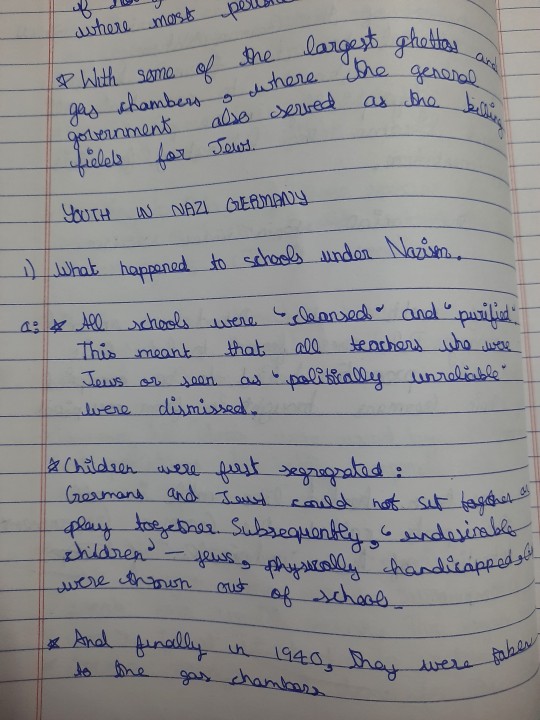 where most
* With some of the largest ghettos and
gas chambers, where the general
government also served as the killing
fields for Jews.
YOUTH IN NAZI GERMANY
i) What happened to schools under Nazism.
a: * All schools were "cleansed" and "purified"
This meant that all teachers who were
Jews or seen as "politically unreliable"
were dismissed.
* Children were first segregrated :
Germans and Jews could not sit together or
play together. Subsequently, "undesirable
children" - jews, physically handicapped,
were thrown out of schools -
* And finally in 1940, they were taken
to the gas chambers